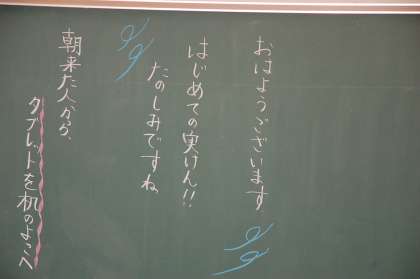 おはようございます
はじめての実けん!!
たのしみですね
朝来た人から、
タブレットを机のよこへ